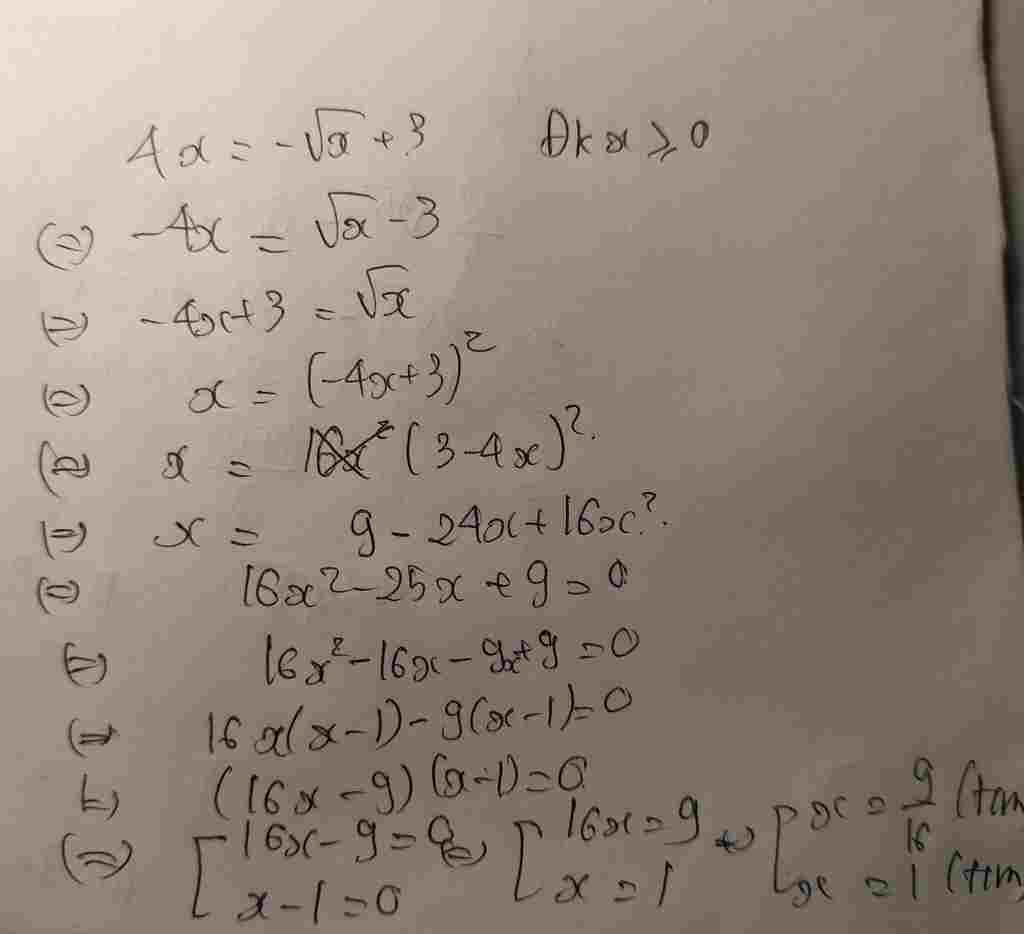 4x = -√x + 3 Đk x ⩾ 0
(=) -4x = √x - 3
(=) -4x+3 = √x
(=) x = (-4x+3)²
(=) x = (3-4x)².
(=) x = 9 - 24x + 16x².
(=) 16x² - 25x + 9 = 0
(=) 16x² - 16x - 9x + 9 = 0
(=) 16x(x-1) - 9(x-1) = 0
(=) (16x - 9)(x-1) = 0
(=) [ 16x - 9 = 0 (=) [ 16x = 9 (=) [ x = 9/16 (tm
x - 1 = 0 x = 1 x = 1 (tm